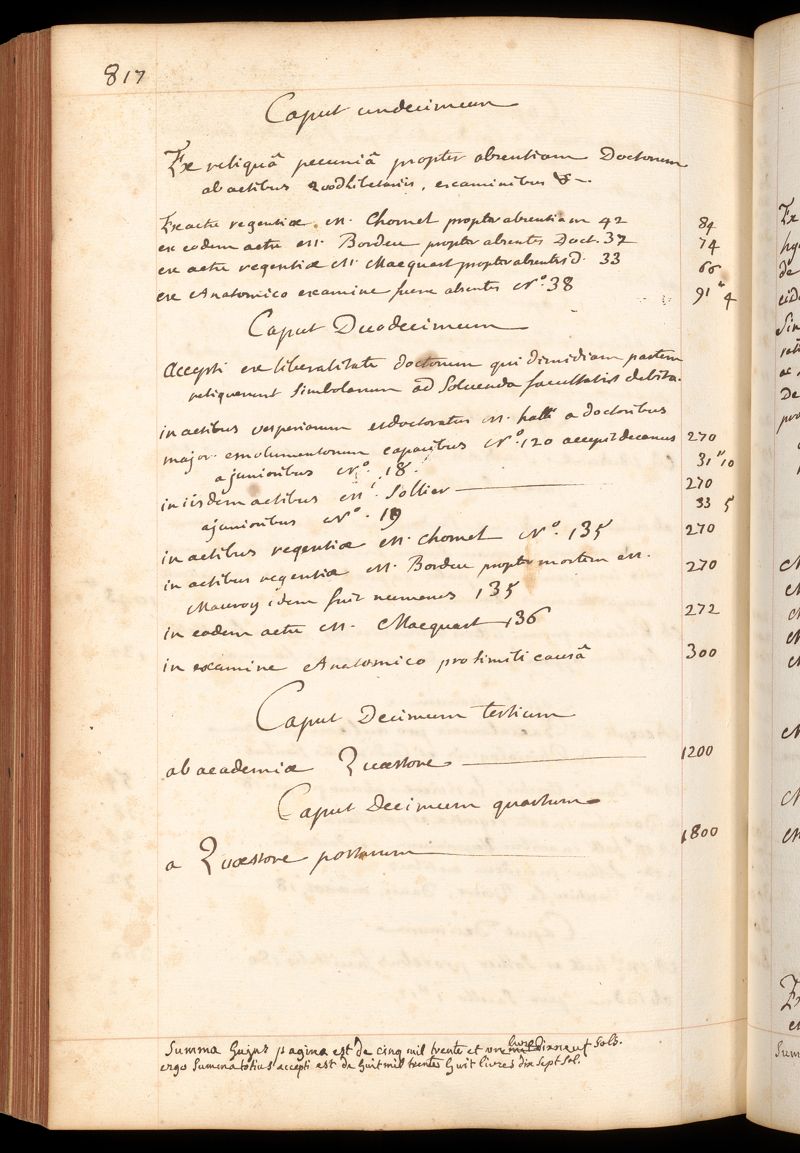 817
Caput undecimum
Ex reliquâ pecuniâ propter absentiam Doctorum
ab actibus Quodlibetariis, examinibus &-.
Ex actu regentiæ M. Chomel propter absentiam 42 84
ex eodem actu M. Bordeu propter absentes Doct. 37 74
ex actu regentiæ M. Macquart propter absentes D. 33 66
ex Anatomico examine fuere absentes N.o 38 91 " 4
Caput Duodecimum
Accepti ex liberalitate doctorum qui dimidiam partem
reliquerunt simbolarum ad Solvenda facultatis debita.
in actibus vesperiarum et doctoratus M. hallé a doctoribus
major. emolumentorum capacibus N.o 120 accepit decanus 270
a junioribus N.o 18. 31 " 10
in iisdem actibus M. Sollier 270
a junioribus N.o 19 33 5
in actibus regentiæ M. Chomel N.o 135 270
in actibus regentiæ M. Bordeu propter mortem M.
Mauroy idem fuit numerus 135 270
in eodem actu M. Macquart 136 272
in examine Anatomico pro simili causâ 300
Caput Decimum tertium
ab academiæ Quæstore 1200
Caput Decimum quartum
a Quæstore postarum 1800
Summa hujus pagina est de cinq mil trente et une livres dixneuf Sols.
ergo Summa totius accepti est de huit mil trente huit livres dix Sept Sol.